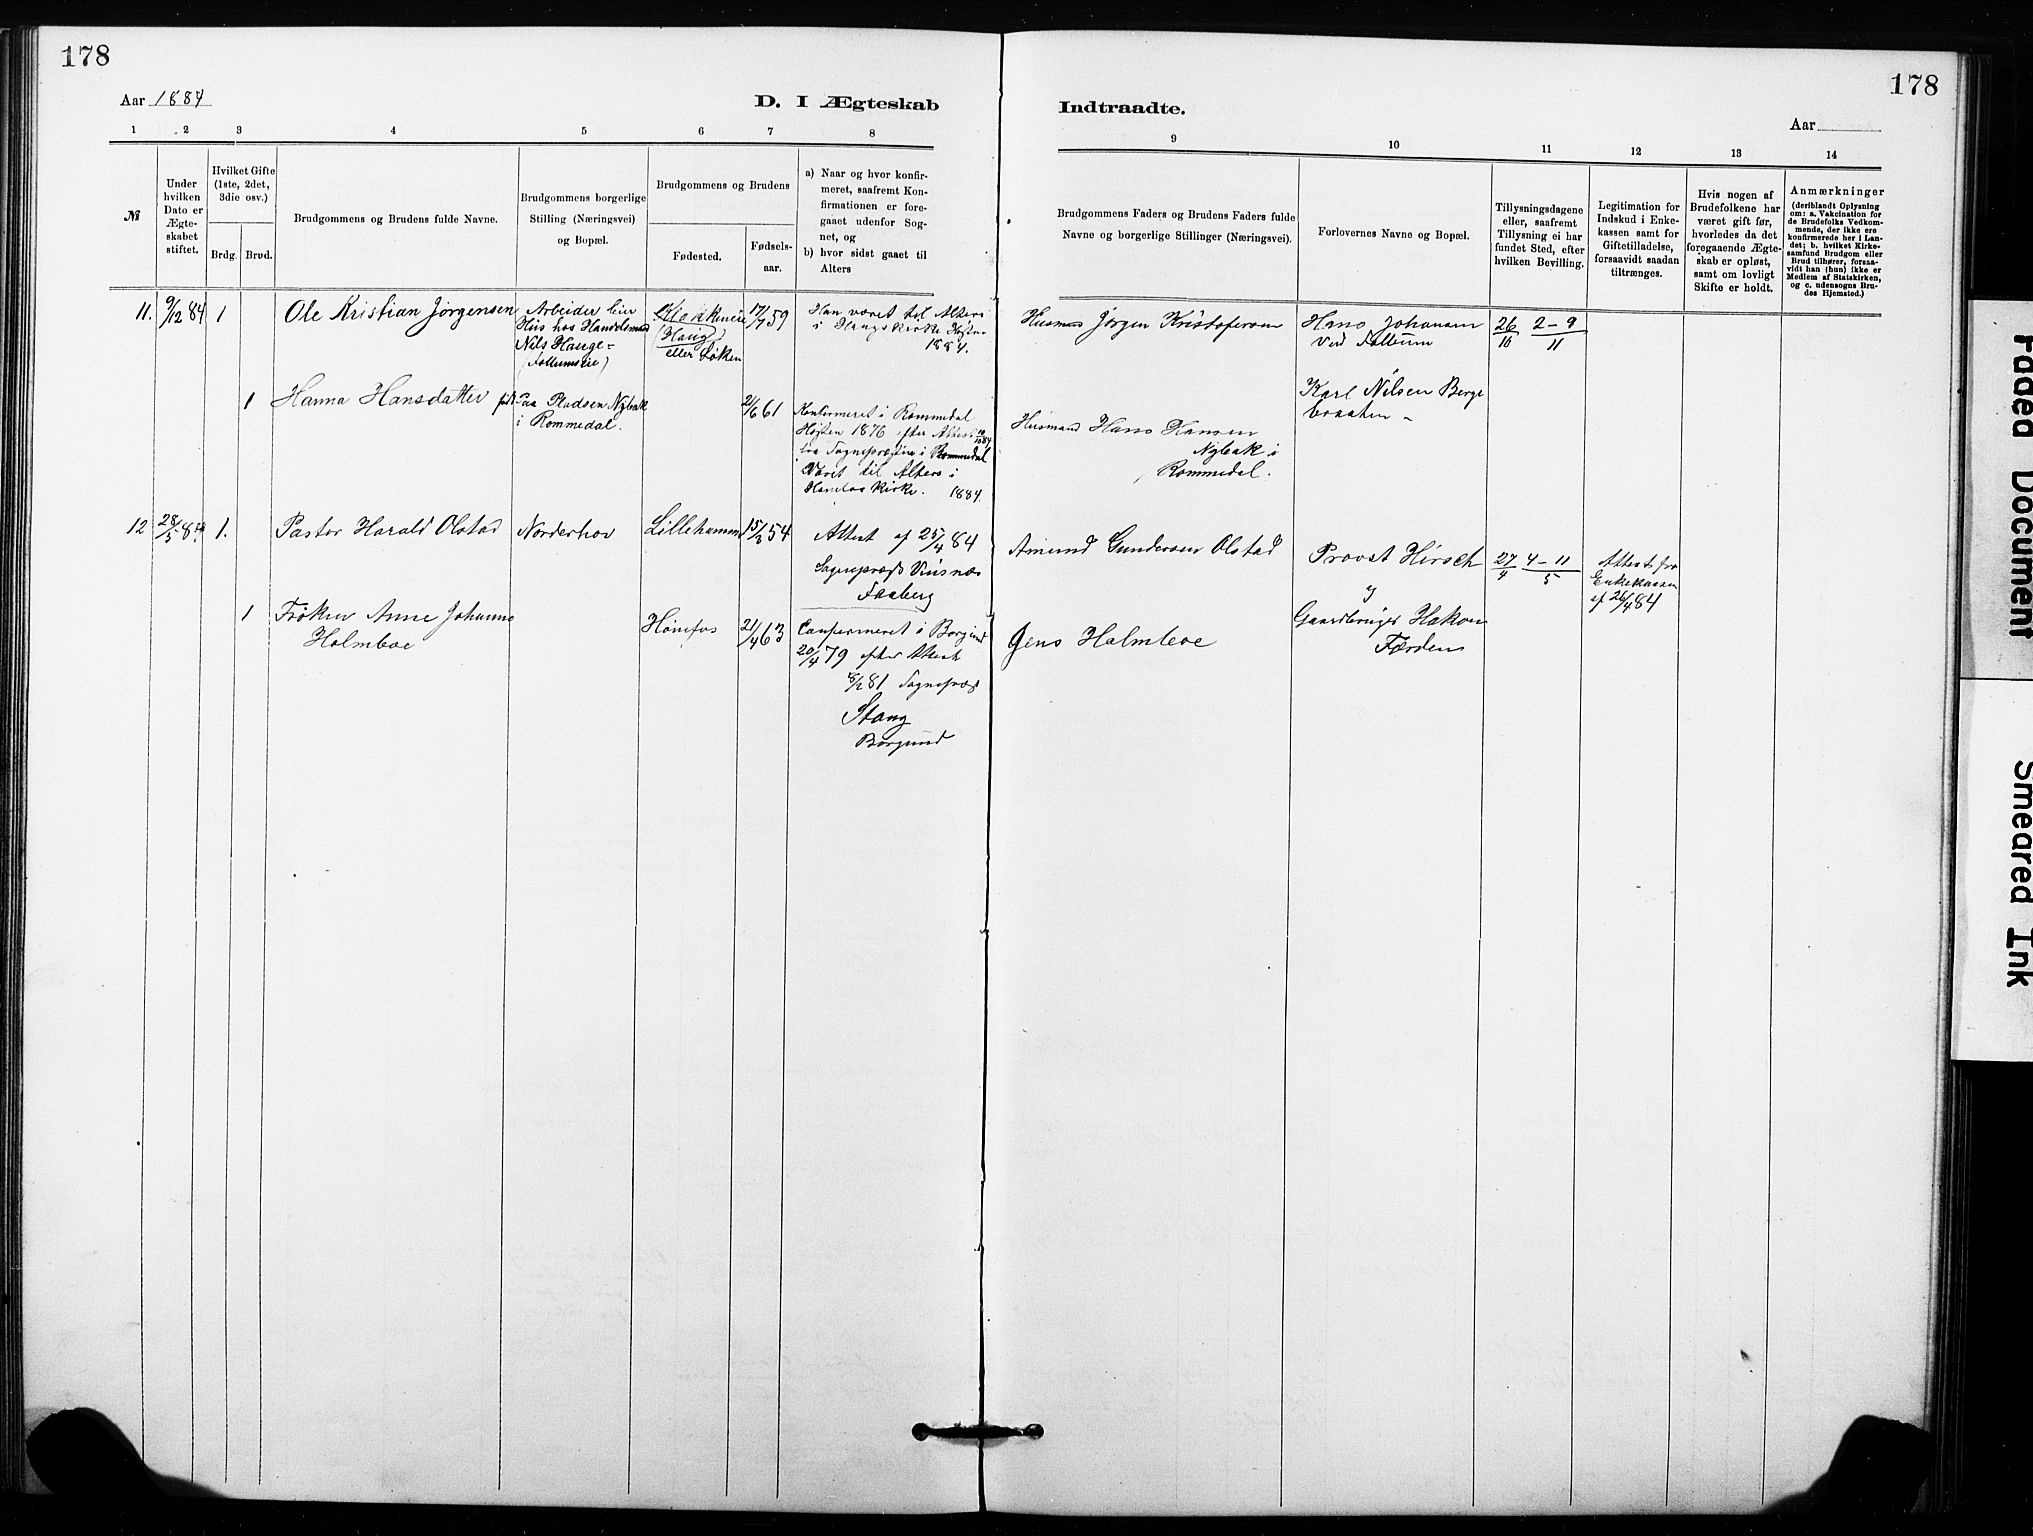 178
178
Aar 1884
D. I Ægteskab
Indtraadte.
Aar
1 2 3 4 5 6 7 8
9 10 11 12 13 14
№
Under
hvilken
Dato er
Ægte-
skabet
stiftet.
Hvilket Gifte
(1ste, 2det,
3die osv.)
Brdg. Brud.
Brudgommens og Brudens fulde Navne.
Brudgommens borgerlige
Stilling (Næringsvei)
og Bopæl.
Brudgommens og Brudens
Fødested.
Fødsels-
aar.
a) Naar og hvor konfir-
meret, saafremt Kon-
firmationen er fore-
gaaet udenfor Sog-
net, og
b) hvor sidst gaaet til
Alters
Brudgommens Faders og Brudens Faders fulde
Navne og borgerlige Stillinger (Næringsvei).
Forlovernes Navne og Bopæl.
Tillysningsdagene
eller, saafremt
Tillysning ei har
fundet Sted, efter
hvilken Bevilling.
Legitimation for
Indskud i Enke-
kassen samt for
Giftetilladelse,
forsaavidt saadan
tiltrænges.
Hvis nogen af
Brudefolkene har
været gift før,
hvorledes da det
foregaaende Ægte-
skab er opløst,
samt om lovligt
Skifte er holdt.
Anmærkninger
(deriblandt Oplysning
om: a. Vakcination for
de Brudefolks Vedkom-
mende, der ikke ere
konfirmerede her i Lan-
det; b. hvilket Kirke-
samfund Brudgom eller
Brud tilhører, forsaa-
vidt han (hun) ikke er
Medlem af Statskirken,
og c. udensogns Bru-
des Hjemsted.)
11. 9/12 84 1
Ole Kristian Jørgensen
Arbeider leier
Hus hos Handelsmand
Nils Hauge
(Haug)
eller Løken
17/7 59
Han været til Alters
i Haugs Kirke Høsten
1884.
Husmand Jørgen Kristofersen
Hans Johansen
ved Follum
26/10 2-9/11
1 Hanna Hansdatter
Paa Pladsen Nybak
i Rommedal.
2/6 61
Konfirmeret i Rommedal
Høsten 1876 efter Attest
fra Sognepræsten i Rommedal
Været til Alters i
Hønefos Kirke. 1884.
Husmand Hans Hansen
Nybak i
Rommedal.
Karl Nilsen Berge
braaten
12 28/5 1.
Pastor Harald Olstad
Norderhov
Lillehammer
15/3 54
Attest af 25/4 84
Sognepræst
Faaberg
Amund Gundersen Olstad
Provst Hirsch
27/4 4-11/5
Attest fra
Enkekassen
af 26/4 84
1 Frøken Anne Johanne
Holmboe
Hønefos
21/4 63
Confirmeret i Borgund
20/4 79 efter Attest
8/2 81 Sognepræst
Stang
Borgund
Jens Holmboe
og
Gaardbruger Hakon
Færden
Faded Document
Smeared Ink